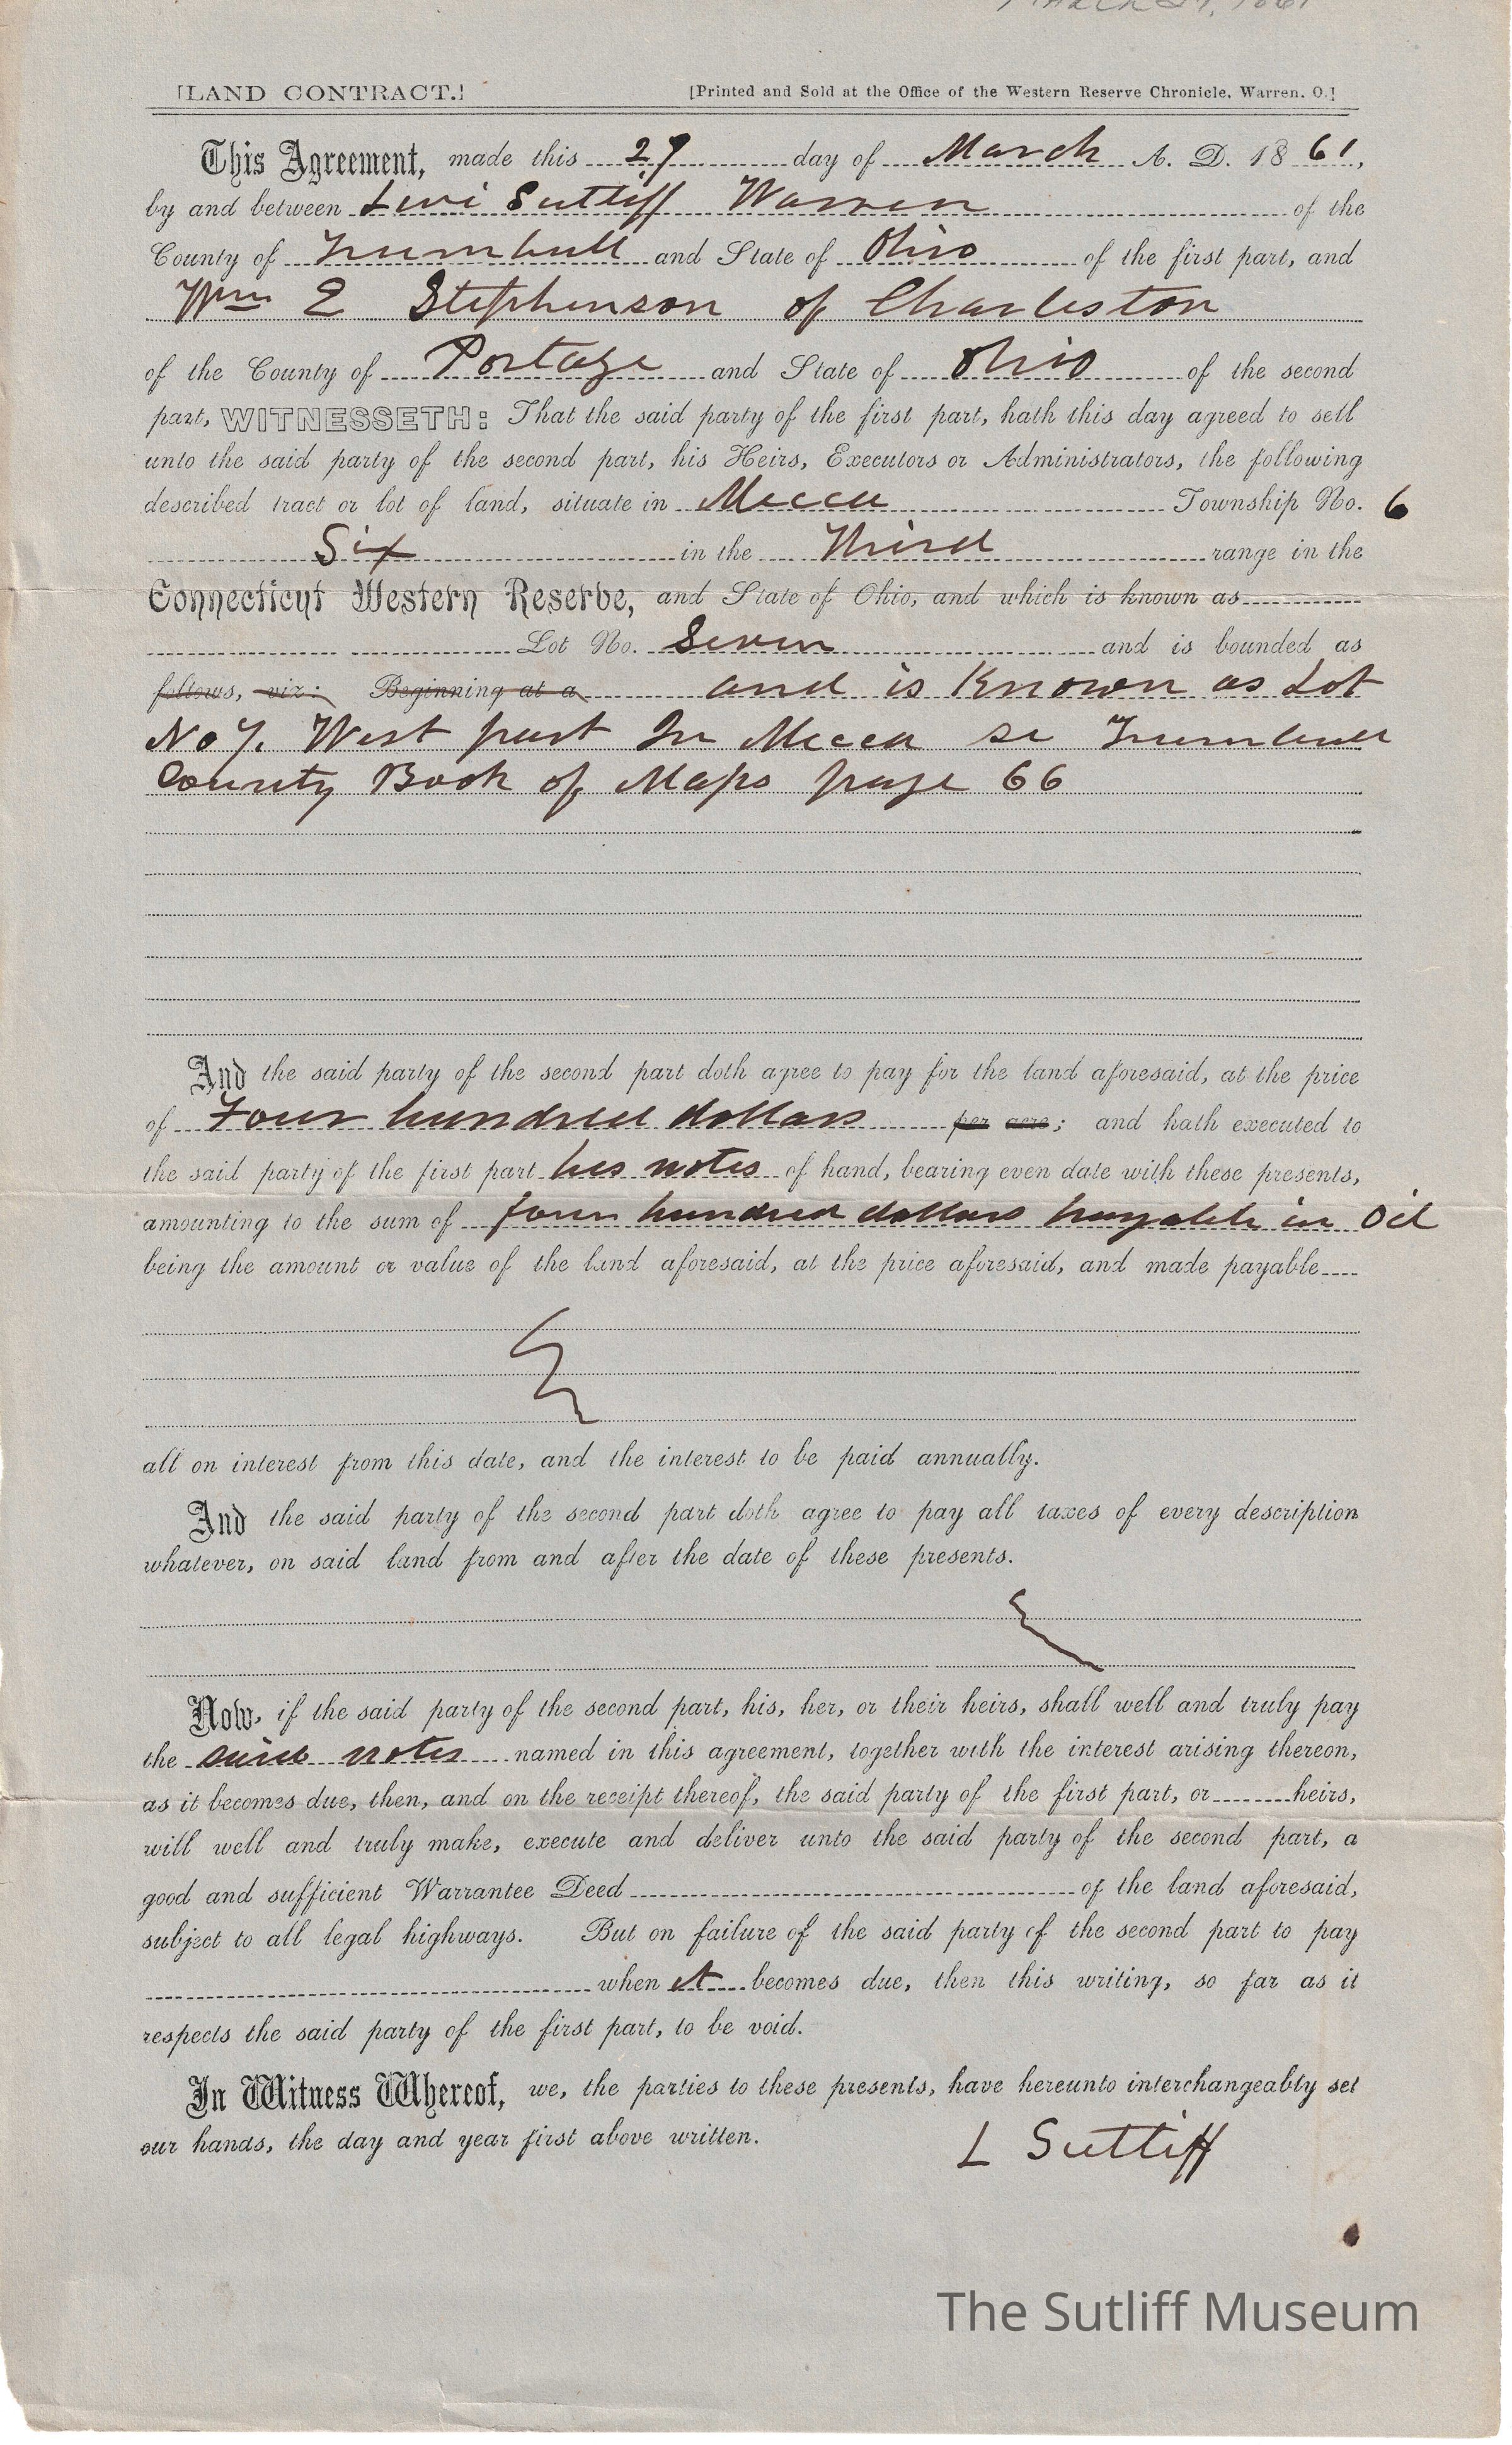 [LAND CONTRACT.] [Printed and Sold at the Office of the Western Reserve Chronicle, Warren, O.]
This Agreement, made this 29 day of March A. D. 1861,
by and between Levi Sutliff Warren of the
County of Trumbull and State of Ohio of the first part, and
Wm E Stephenson of Charleston
of the County of Portage and State of Ohio of the second
part, WITNESSETH: That the said party of the first part, hath this day agreed to sell
unto the said party of the second part, his Heirs, Executors or Administrators, the following
described tract or lot of land, situate in Mecca Township No. 6
Six in the Third range in the
Connecticut Western Reserve, and State of Ohio, and which is known as
Lot No. Seven and is bounded as
follows, viz: Beginning at a and is Known as Lot
No 7. West part In Mecca se Trumbull
County Book of Maps page 66
And the said party of the second part doth agree to pay for the land aforesaid, at the price
of Four hundred dollars per acre; and hath executed to
the said party of the first part his notes of hand, bearing even date with these presents,
amounting to the sum of four hundred dollars payable in Oil
being the amount or value of the land aforesaid, at the price aforesaid, and made payable
all on interest from this date, and the interest to be paid annually.
And the said party of the second part doth agree to pay all taxes of every description
whatever, on said land from and after the date of these presents.
Now, if the said party of the second part, his, her, or their heirs, shall well and truly pay
the said notes named in this agreement, together with the interest arising thereon,
as it becomes due, then, and on the receipt thereof, the said party of the first part, or heirs,
will well and truly make, execute and deliver unto the said party of the second part, a
good and sufficient Warrantee Deed of the land aforesaid,
subject to all legal highways. But on failure of the said party of the second part to pay
when it becomes due, then this writing, so far as it
respects the said party of the first part, to be void.
In Witness Whereof, we, the parties to these presents, have hereunto interchangeably set
our hands, the day and year first above written.
L Sutliff
The Sutliff Museum